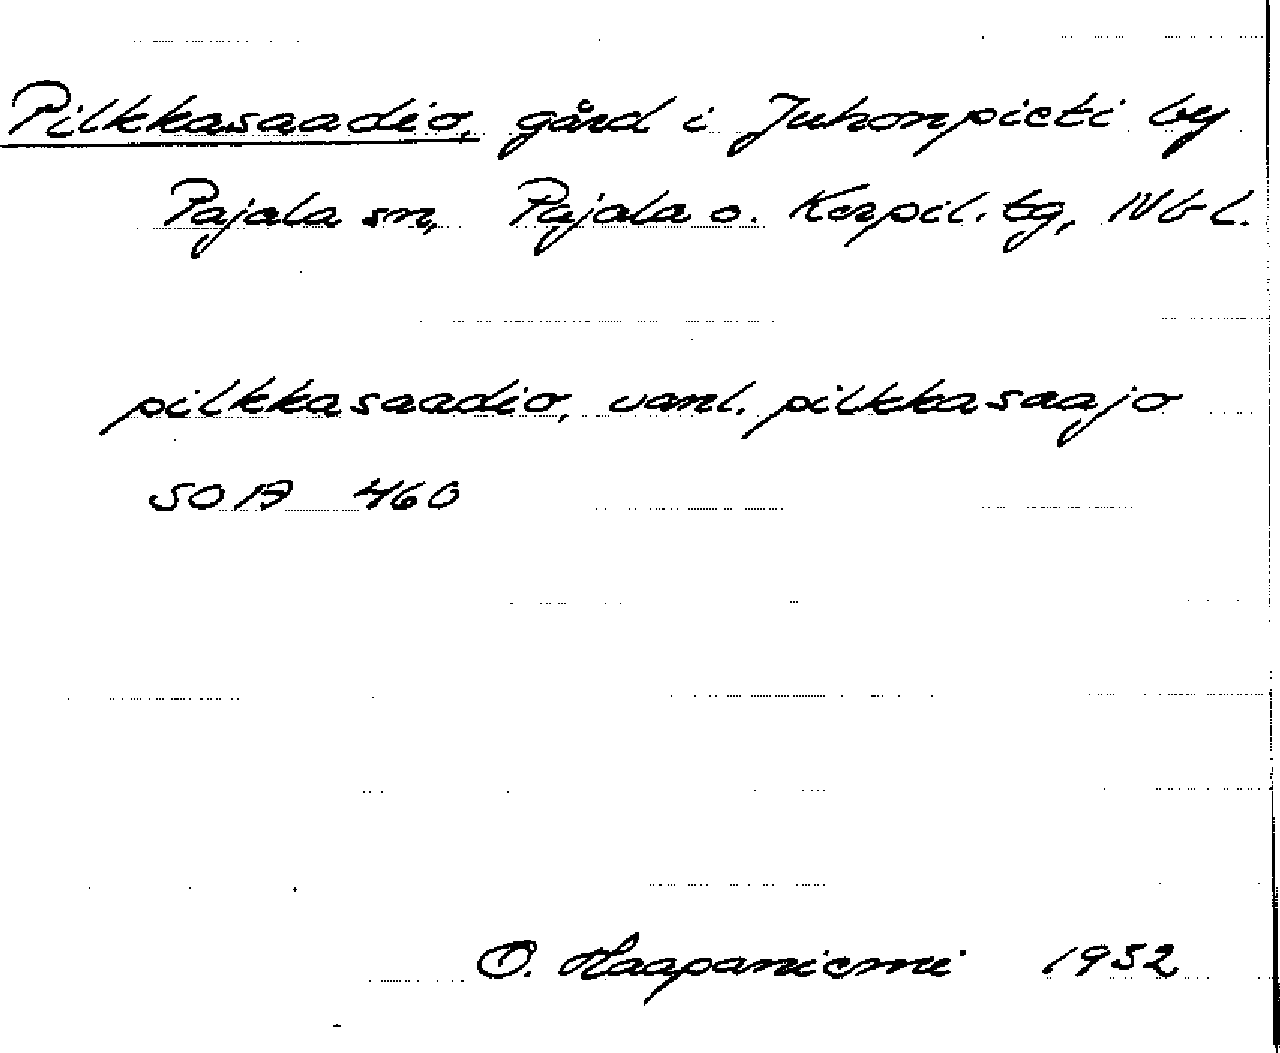 Pilkkasaadio, gård i Juhonpieti by
Pajala sn, Pajala o. Korpil. tg, Nb l.
pilkkasaadio, vanl. pilkkasaajo
SOA 460
O. Haapaniemi 1952